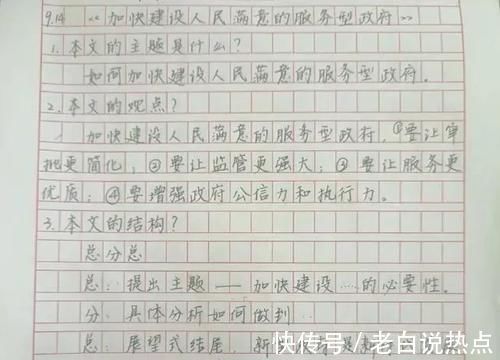 9.14 《加快建设人民满意的服务型政府》
1.本文的主题是什么？
如何加快建设人民满意的服务型政府。
2.本文的观点？
加快建设人民满意的服务型政府，①要让审
批更简化；②要让监管更强大；③要让服务更
优质；④要增强政府公信力和执行力。
3.本文的结构？
总分总
总：提出主题——加快建设……的必要性。
分：具体分析如何做到…
总：展望式结尾，新
快传号/老白说热点